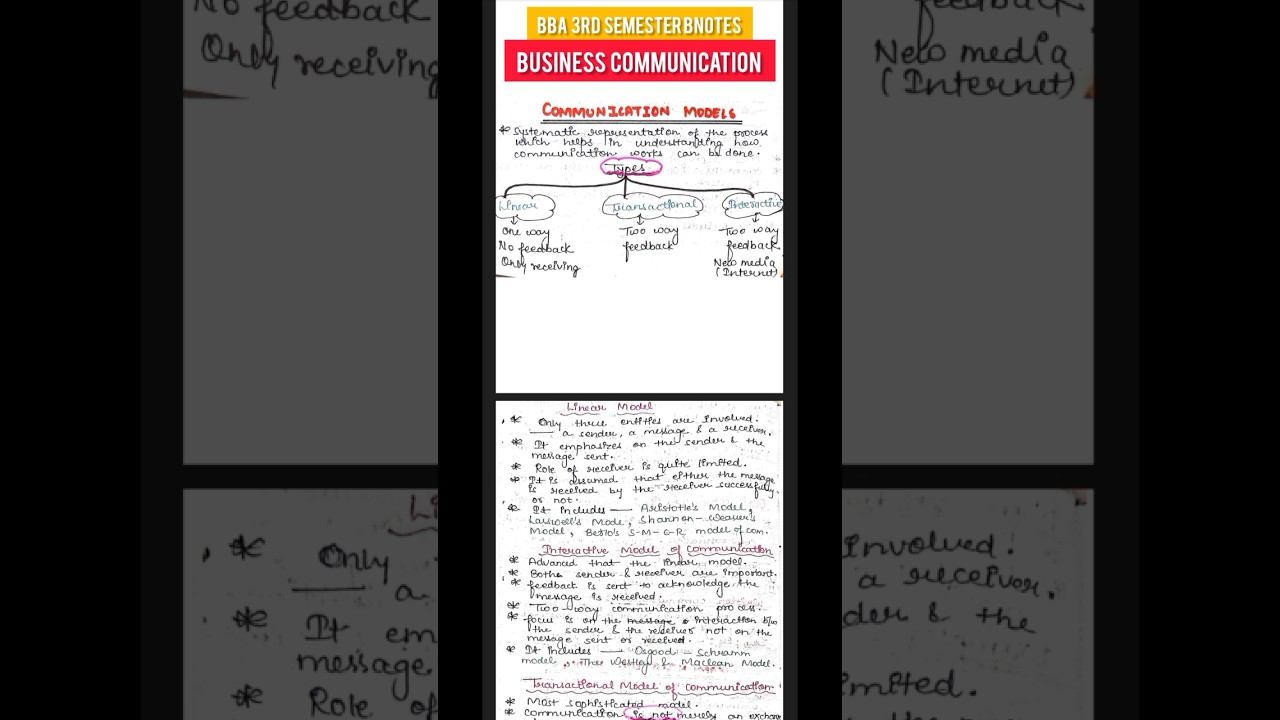 BBA 3RD SEMESTER BNOTES
BUSINESS COMMUNICATION
COMMUNICATION MODELS
* Systematic representation of the process
which helps in understanding how
communication works can be done.
Types
Linear
Transactional
Interactive
One way
No feedback
Only receiving
Two way
feedback
Two way
feedback
New media
(Internet)
Linear Model
* Only three entities are involved.
— a sender, a message & a receiver.
* It emphasizes on the sender & the
message sent.
* Role of receiver is quite limited.
* It is assumed that either the message
is received by the receiver successfully
or not.
* It includes — Aristotle's Model,
Laswell's Model, Shannon-Weaver's
Model, Berlo's S-M-C-R model of com.
Interactive Model of Communication
* Advanced that the linear model.
* Both sender & receiver are important.
* feedback is sent to acknowledge the
message is received.
* Two-way communication process.
* focus is on the message interaction b/w
the sender & the receiver not on the
message sent or received.
* It includes — Osgood - Schramm
model, The Westley & Maclean Model.
Transactional Model of communication
* Most sophisticated model.
* Communication is not merely an exchan
No feedback
Only receiving
feedback
New media
(Internet)
Li
* Only
— a
* It em
message
* Role of
involved.
a receiver.
der & the
imited.